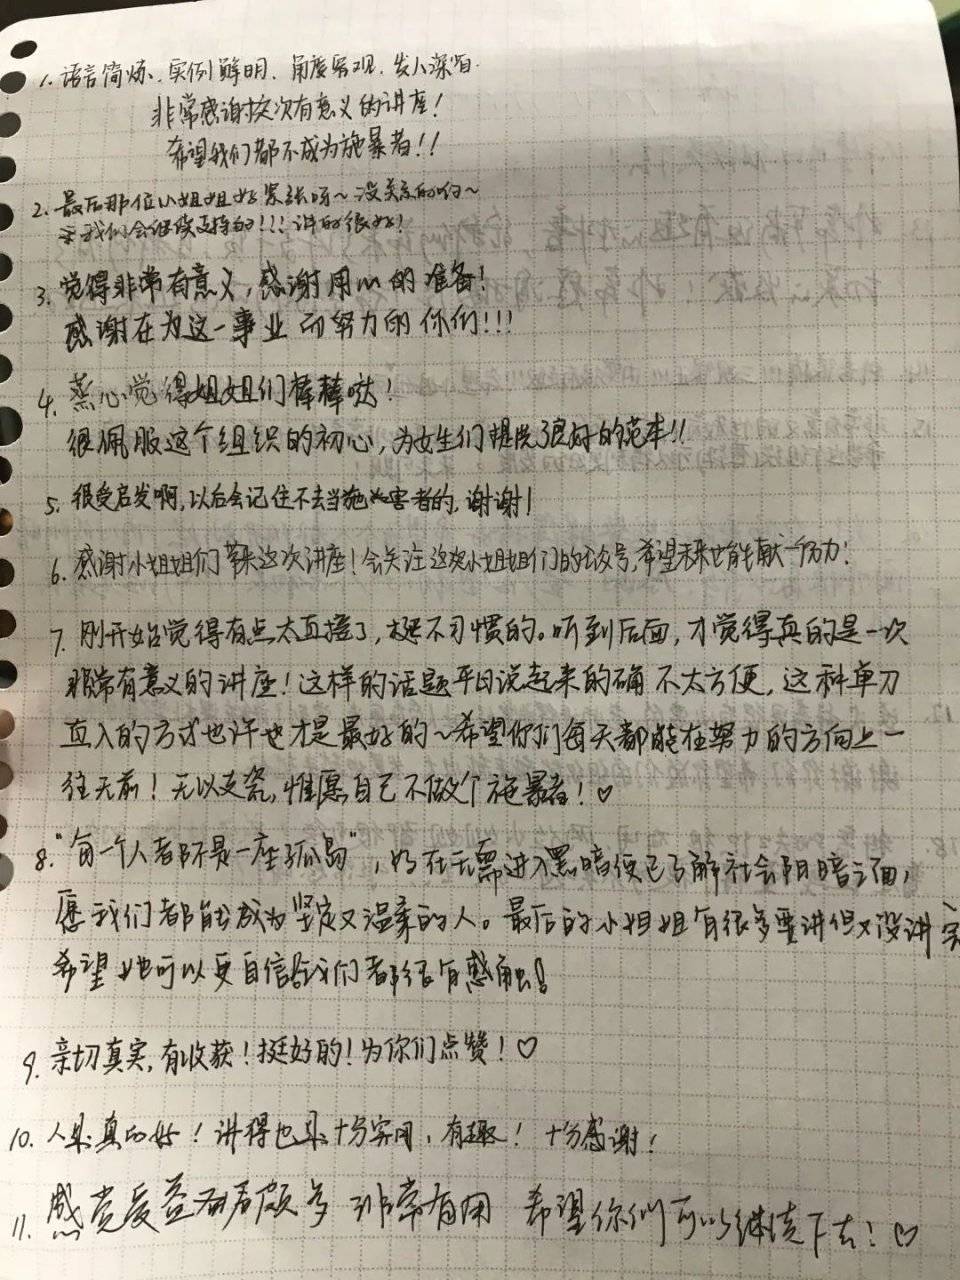 1. 语言简炼、实例鲜明、角度客观、发人深省.
非常感谢这次有意义的讲座！
希望我们都不成为施暴者！！
2. 最后那位小姐姐好紧张呀～没关系的哟～
我们会继续支持的！！！讲的很好！
3. 觉得非常有意义，感谢用心的准备！
感谢在为这一事业而努力的你们！！！
4. 蒸心觉得姐姐们棒棒哒！
很佩服这个组织的初心，为女生们提供了很好的范本！！
5. 很受启发啊，以后会记住不去当施害者的，谢谢！
6. 感谢小姐姐们带来这次讲座！会关注这类小姐姐们的公众号，希望未来也能献一份力！
7. 刚开始觉得有点太直接了，挺不习惯的。听到后面，才觉得真的是一次
非常有意义的讲座！这样的话题平日说起来的确不太方便，这种单刀
直入的方式也许也才是最好的～希望你们每天都能在努力的方向上一
往无前！无以支瓷，惟愿自己不做个施暴者！♡
8. “每一个人都不是一座孤岛”，好在无需进入黑暗便已了解社会阴暗之面，
愿我们都能成为坚定又温柔的人。最后的小姐姐有很多要讲但又没讲完
希望她可以更自信给我们都很有感触！
9. 亲切真实，有收获！挺好的！为你们点赞！♡
10. 人是真的好！讲得也是十分实用，有趣！十分感谢！
11. 感觉受益颇多 非常有用 希望你们可以继续下去！♡